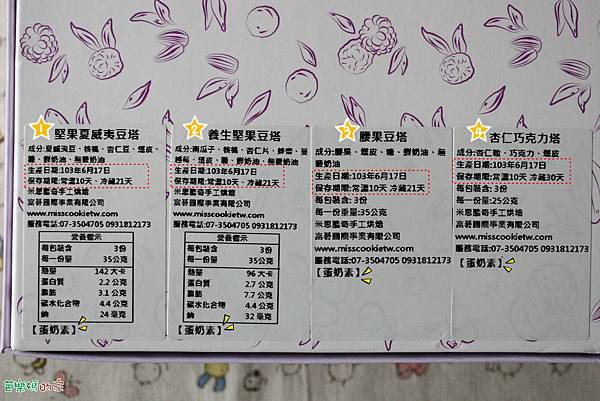 1
堅果夏威夷豆塔
成分:夏威夷豆、核桃、杏仁豆、塔皮、
糖、鮮奶油、無鹽奶油
生產日期:103年6月17日
保存期限:常溫10天、冷藏21天
米思酷奇手工烘焙
富碁國際事業有限公司
www.misscookietw.com
服務電話:07-3504705 0931812173
營養標示
每包裝含 3份
每一份量 35公克
熱量 142 大卡
蛋白質 2.2 公克
脂肪 3.1 公克
碳水化合物 4.4 公克
鈉 24 毫克
【蛋奶素】
2
養生堅果豆塔
成分:南瓜子、核桃、杏仁片、蜂蜜、蔓
越莓、塔皮、糖、鮮奶油、無鹽奶油
生產日期:103年6月17日
保存期限:常溫10天、冷藏21天
米思酷奇手工烘焙
富碁國際事業有限公司
www.misscookietw.com
服務電話:07-3504705 0931812173
營養標示
每包裝含 3份
每一份量 35公克
熱量 96 大卡
蛋白質 2.7 公克
脂肪 7.7 公克
碳水化合物 4.4 公克
鈉 32 毫克
【蛋奶素】
3
腰果豆塔
成分:腰果、塔皮、糖、鮮奶油、無
鹽奶油
生產日期:103年6月17日
保存期限:常溫10天、冷藏21天
每包裝含: 3份
每一份重量:35公克
米思酷奇手工烘焙
富碁國際事業有限公司
www.misscookietw.com
服務電話:07-3504705 0931812173
【蛋奶素】
4
杏仁巧克力塔
成分:杏仁粒、巧克力、塔皮
生產日期:103年6月17日
保存期限:常溫10天、冷藏30天
每包裝含: 3份
每一份量:25公克
米思酷奇手工烘焙
富碁國際事業有限公司
www.misscookietw.com
服務電話:07-3504705 0931812173
【蛋奶素】
芭樂媽的家